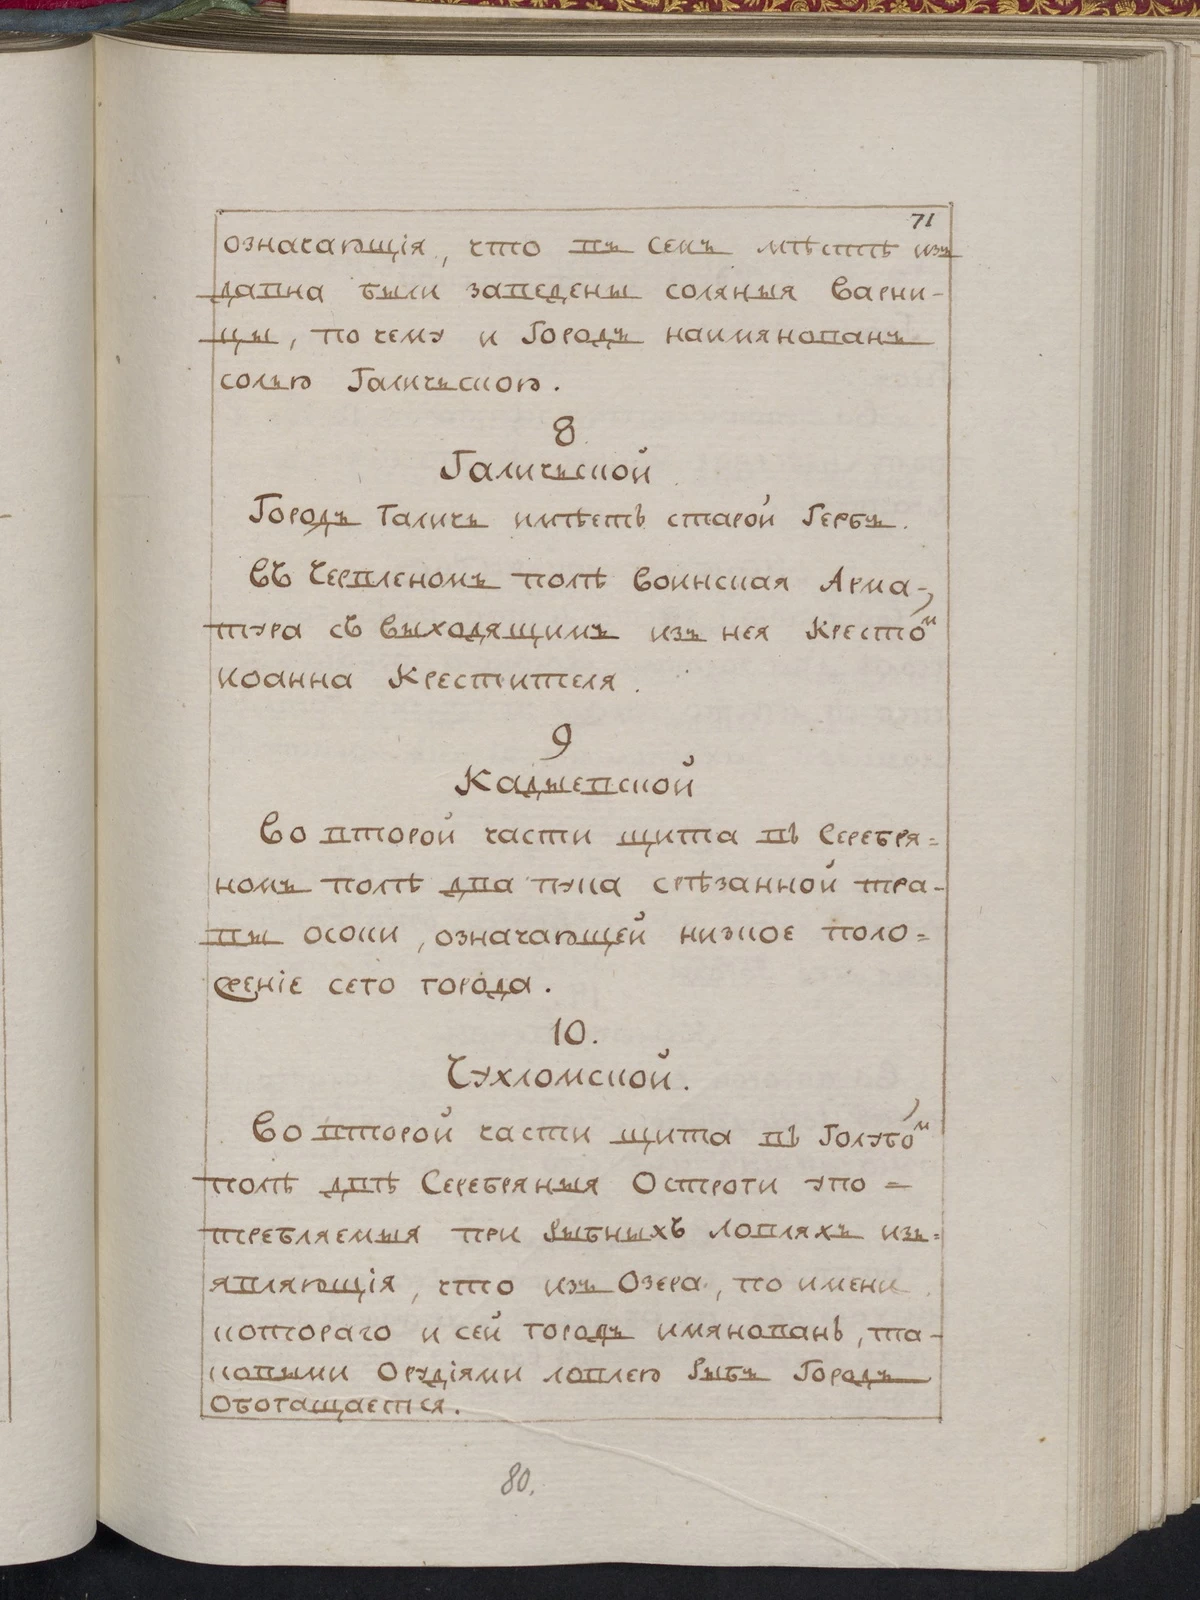 71
означающiя, что въ семъ мѣстѣ изъ
давна были заведены соляныя варни-
цы, по чему и Городъ наимянованъ
солью Галичьскою.
8
Галичьской
Городъ Галичь имѣетъ старой Гербъ.
Въ Червленомъ полѣ Воинская Арма-
тура съ выходящимъ изъ нея Крестом
Иоанна Крестителя.
9
Кадыевской
Во второй части щита въ Серебря=
номъ полѣ два пука срѣзанной тра-
вы осоки, означающей низкое поло=
женiе сего города.
10.
Чухломской.
Во второй части щита въ Голубом
полѣ двѣ Серебряныя Остроги упо=
требляемыя при Рыбныхъ Ловляхъ изъ=
являющiя, что изъ Озера, по имени
котораго и сей городъ имянованъ, та-
ковыми Орудiями ловлею Рыбъ Городъ
Обогащается.
80.